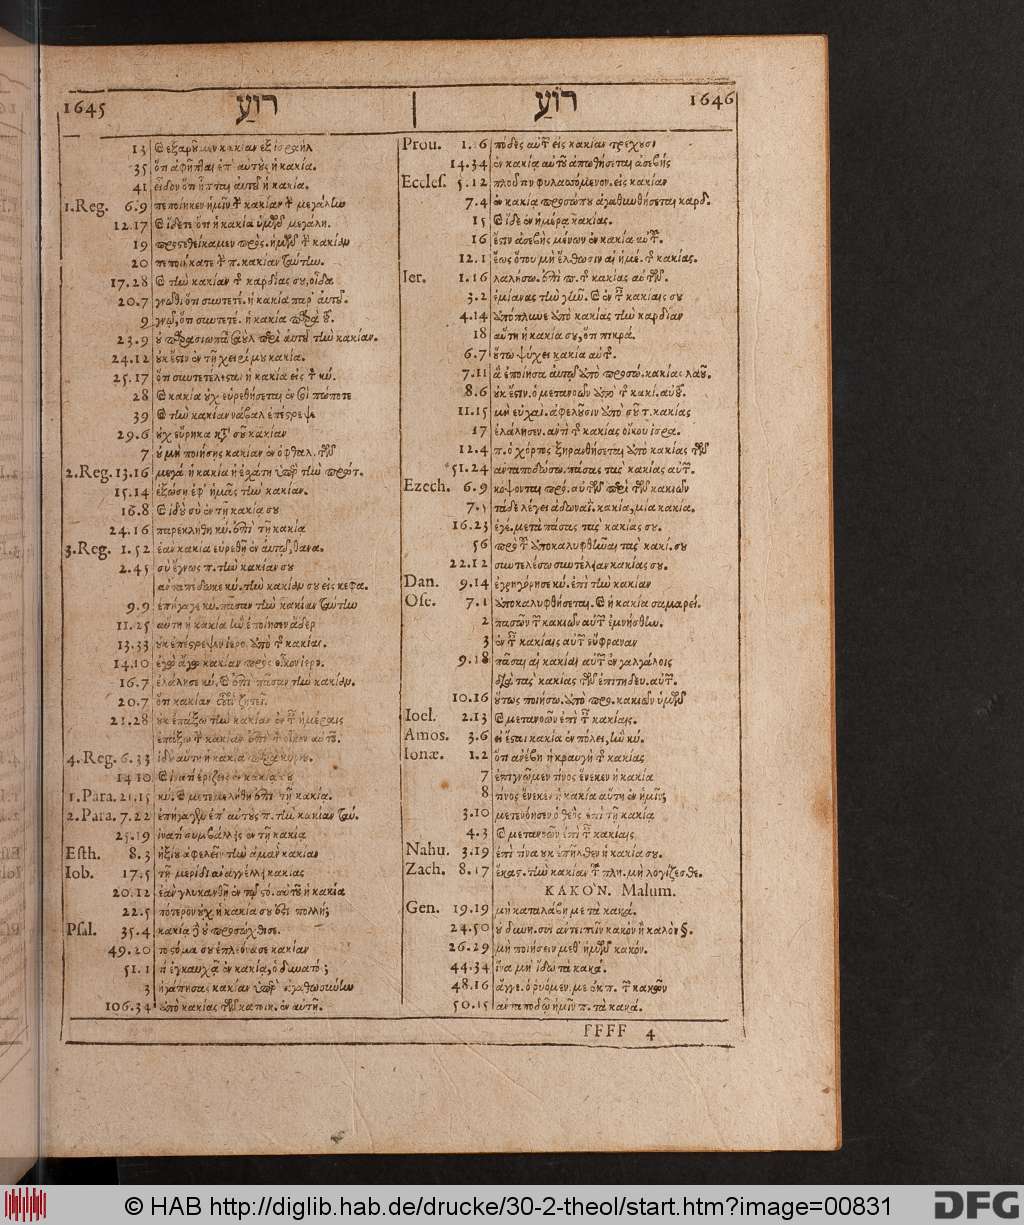 1645 רוֹעַ רוֹעַ 1646
13 καὶ ἐξαροῦμεν κακίαν ἐξ ἰσραήλ
35 ὅτι ἀφῆπται ἐπ' αὐτοὺς ἡ κακία.
41 εἶδον ὅτι ἧπται αὐτοῦ ἡ κακία.
1.Reg. 6.9 πεποίηκεν ἡμῖν τὴν κακίαν τὴν μεγάλην
12.17 καὶ ἴδετε ὅτι ἡ κακία ὑμῶν μεγάλη.
19 προστεθείκαμεν πρὸς. ἡμῶν τὴν κακίαν
20 πεποιήκατε τὴν π. κακίαν ταύτην.
17.28 καὶ τὴν κακίαν τῆς καρδίας σου, οἶδα
20.7 γνῶθι ὅτι συντετέ. ἡ κακία παρ' αὐτοῦ.
9 γνῶ, ὅτι συντετέ. ἡ κακία παρὰ τοῦ.
23.9 οὐ παρασιωπᾷ σαοὺλ περὶ αὐτοῦ τὴν κακίαν.
24.12 οὐκ ἔστιν ἐν τῇ χειρί μου κακία.
25.17 ὅτι συντετέλεσται ἡ κακία εἰς τὸν κύ.
28 καὶ κακία οὐχ εὑρεθήσεται ἐν σοὶ πώποτε
39 καὶ τὴν κακίαν νάβαλ ἐπέστρεψε
29.6 οὐχ εὕρηκα κατὰ σοῦ κακίαν
7 οὐ μὴ ποιήσῃς κακίαν ἐν ὀφθαλ. τῶν
2.Reg. 13.16 μεγά ἡ κακία ἡ ἐχάτη ὑπὲρ τὴν πρώτ.
15.14 ἐξώσῃ ἐφ' ἡμᾶς τὴν κακίαν.
16.8 καὶ ἰδοὺ σὺ ἐν τῇ κακίᾳ σου
24.16 παρεκλήθη κύ. ἐπὶ τῇ κακίᾳ
3.Reg. 1.52 ἐὰν κακία εὑρεθῇ ἐν αὐτῷ, θανα.
2.45 σὺ ἔγνως π. τὴν κακίαν σου
ἀνταπέδωκε κύ. τὴν κακίαν σου εἰς κεφα.
9.9 ἐπήγαγε κύ. πᾶσαν τὴν κακίαν ταύτην
11.25 αὕτη ἡ κακία ἣν ἐποίησεν ἄδερ
13.33 οὐκ ἐπέστρεψεν ἱερο. ἀπὸ τῆς κακίας.
14.10 ἐγὼ ἄγω κακίαν πρὸς οἶκον ἱερο.
16.7 ἐλάλησε κύ. καὶ ἐπὶ πᾶσαν τὴν κακίαν.
20.7 ὅτι κακίαν οὗτος ζητεῖ.
21.28 οὐκ ἐπάξω τὴν κακίαν ἐν ταῖς ἡμέραις
ἐπάξω τὴν κακίαν ἐπὶ τὸν οἶκον αὐτοῦ.
4.Reg. 6.33 ἰδοὺ αὕτη ἡ κακία παρὰ κυρίου.
14 10 καὶ ἱνατί ἐρίζεις ἐν κακίᾳ σου
1.Para. 21.15 κύ. καὶ μετεμελήθη ἐπὶ τῇ κακίᾳ.
2.Para. 7.22 ἐπήγαγεν ἐπ' αὐτοὺς π. τὴν κακίαν ταύ.
25.19 ἱνατί συμβάλλεις ἐν τῇ κακίᾳ
Esth. 8.3 ἠξίου ἀφελεῖν τὴν ἀμαν κακίαν
Iob. 17.5 τῇ μερίδι ἀναγγέλλῃ κακίας
20.12 ἐὰν γλυκανθῇ ἐν τῷ στό. αὐτοῦ ἡ κακία
22.5 πότερον οὐχ ἡ κακία σου ἐστι πολλή;
Psal. 35.4 κακία δὲ οὐ προσώχθισε.
49.20 τὸ στόμα σου ἐπλεόνασε κακίαν
51.1 τί ἐγκαυχᾷ ἐν κακίᾳ, ὁ δυνατός;
3 ἠγάπησας κακίαν ὑπὲρ ἀγαθωσύνην
106.34 ἀπὸ κακίας τῶν κατοικ. ἐν αὐτῇ.
Prou. 1.16 πόδες αὐτῶν εἰς κακίαν τρέχουσι
14.34 ἐν κακίᾳ αὐτοῦ ἀπωθήσεται ἀσεβής
Eccles. 5.12 πλοῦτον φυλασσόμενον. εἰς κακίαν
7.4 ἐν κακίᾳ προσώπου ἀγαθυνθήσεται καρδ.
15 καὶ ἴδε ἐν ἡμέρᾳ κακίας.
16 ἔστιν ἀσεβὴς μένων ἐν κακίᾳ αὐτοῦ.
12.1 ἕως ὅτου μὴ ἔλθωσιν αἱ ἡμέ. τῆς κακίας.
Ier. 1.16 λαλήσω. ἐπὶ π. τῆς κακίας αὐτῶν.
3.2 ἐμίανας τὴν γῆν. καὶ ἐν ταῖς κακίαις σου
4.14 ἀπόπλυνε ἀπὸ κακίας τὴν καρδίαν
18 αὕτη ἡ κακία σου, ὅτι πικρά.
6.7 οὕτω ψύχει κακία αὐτῆς.
7.11 ἃ ἐποίησα αὐτῷ ἀπὸ προσώ. κακίας λαοῦ.
8.6 οὐκ ἔστιν. ὁ μετανοῶν ἀπὸ τῆς κακί. αὐτοῦ.
11.15 μὴ εὐχαὶ. ἀφελοῦσιν ἀπὸ σοῦ τ. κακίας
17 ἐλάλησεν. ἀντὶ τῆς κακίας οἴκου ἰσρα.
12.4 π. ὁ χόρτος ξηρανθήσεται ἀπὸ κακίας τῶν
51.24 ἀνταποδώσω. πάσας τὰς κακίας αὐτῶν.
Ezech. 6.9 κόψονται προσ. αὐτῶν περὶ τῶν κακιῶν
7.5 τάδε λέγει ἀδωναΐ. κακία, μία κακία.
16.23 ἐγε. μετὰ πάσας τὰς κακίας σου.
56 πρὸ τοῦ ἀποκαλυφθῆναι τὰς κακί. σου
22.12 συντελέσω συντέλειαν κακίας σου.
Dan. 9.14 ἐγρηγόρησε κύ. ἐπὶ τὴν κακίαν
Ose. 7.1 ἀποκαλυφθήσεται. καὶ ἡ κακία σαμαρεί.
2 πασῶν τῶν κακιῶν αὐτῶν ἐμνήσθην.
3 ἐν ταῖς κακίαις αὐτῶν εὔφραναν
9.15 πᾶσαι αἱ κακίαι αὐτῶν ἐν γαλγάλοις
διὰ τὰς κακίας τῶν ἐπιτηδευ. αὐτῶν.
10.16 οὕτως ποιήσω. ἀπὸ προ. κακιῶν ὑμῶν
Ioel. 2.13 καὶ μετανοῶν ἐπὶ ταῖς κακίαις.
Amos. 3.6 εἰ ἔσται κακία ἐν πόλει, ἣν κύ.
Ionæ. 1.2 ὅτι ἀνέβη ἡ κραυγὴ τῆς κακίας
7 ἐπιγνῶμεν τίνος ἕνεκεν ἡ κακία
8 τίνος ἕνεκεν ἡ κακία αὕτη ἐν ἡμῖν;
3.10 μετενόησεν ὁ θεὸς ἐπὶ τῇ κακίᾳ
4.3 καὶ μετανοῶν ἐπὶ ταῖς κακίαις
Nahu. 3.19 ἐπὶ τίνα οὐκ ἐπῆλθεν ἡ κακία σου.
Zach. 8.17 ἕκας. τὴν κακίαν τοῦ πλη. μὴ λογίζεσθε.
ΚΑΚΟΝ. Malum.
Gen. 19.19 μὴ καταλάβῃ με τὰ κακά.
24.50 οὐ δυνη. σοι ἀντειπεῖν κακὸν ἢ καλὸν §.
26.29 μὴ ποιήσειν μεθ' ἡμῶν κακόν.
44.34 ἵνα μὴ ἴδω τὰ κακά.
48.16 ἄγγε. ὁ ῥυόμεν. με ἐκ π. τῶν κακῶν
50.15 ἀνταποδῷ ἡμῖν π. τὰ κακά.
fFFF 4
© HAB http://diglib.hab.de/drucke/30-2-theol/start.htm?image=00831
DFG